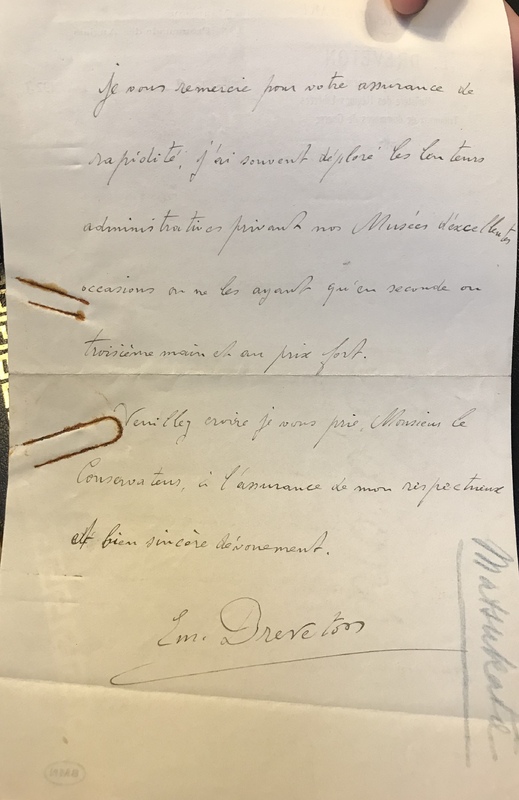 je vous remercie pour votre assurance de
rapidité, j'ai souvent déploré les lenteurs
administratives privant nos Musées d'excellentes
occasions ou ne les ayant qu'en seconde ou
troisième main et au prix fort.
Veuillez croire je vous prie, Monsieur le
Conservateur, à l'assurance de mon respectueux
et bien sincère dévouement.
Em. Breveton
Matsukata